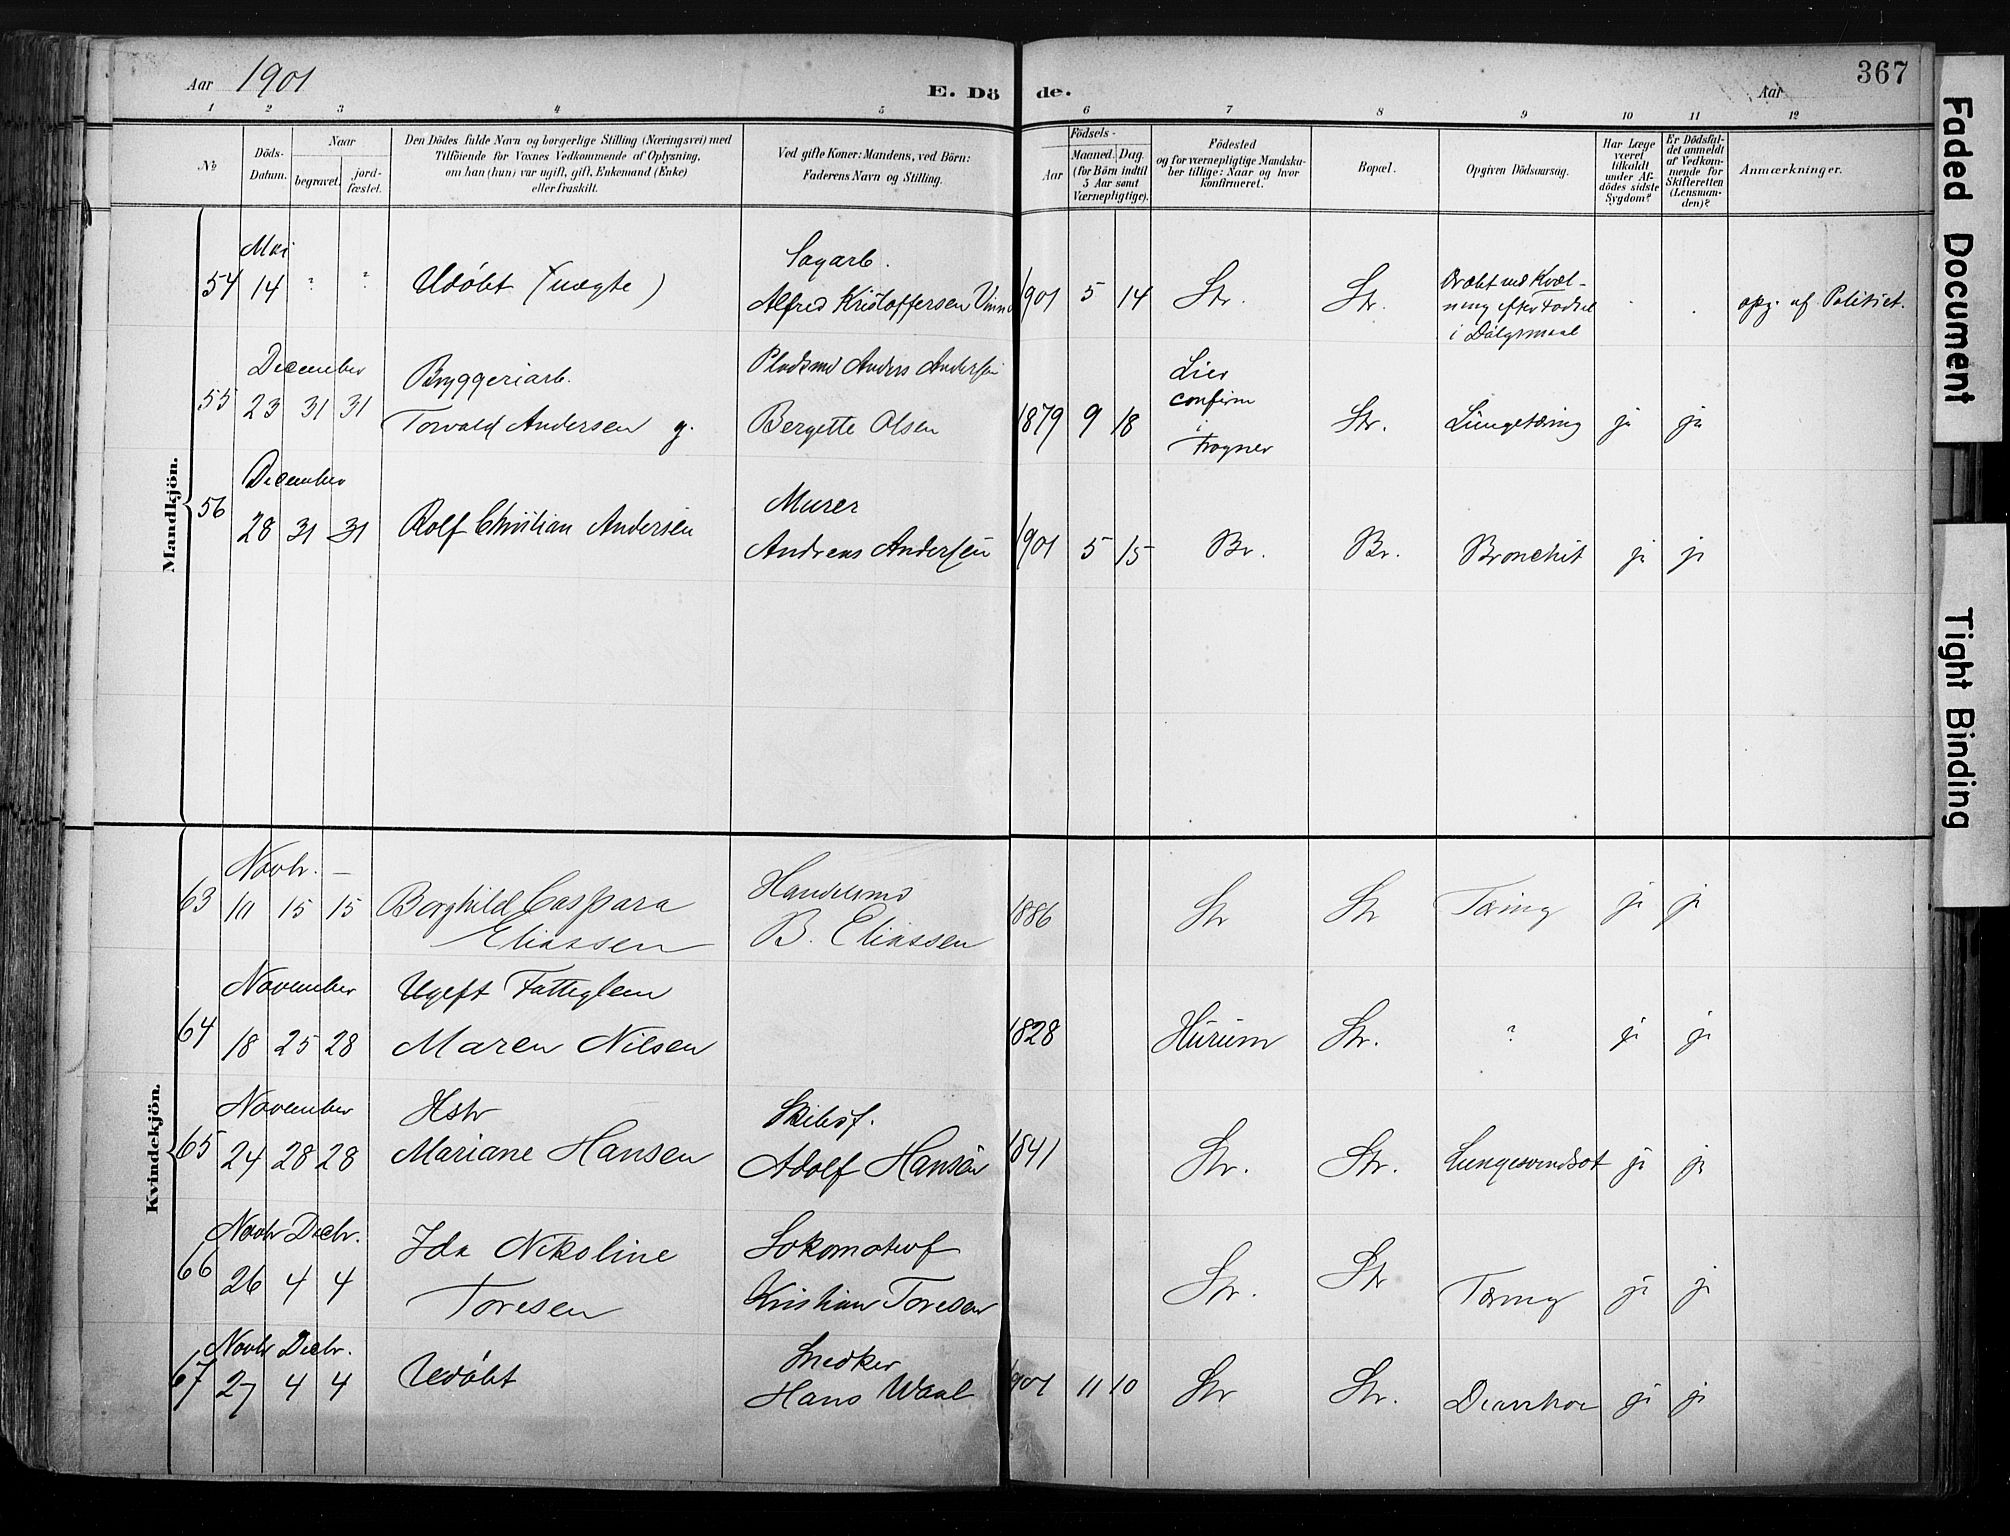 Aar 1901
E. Dö de.
Aar
367
1 2 3 4 5 6 7 8 9 10 11 12
No
Döds-
Datum.
Naar
begravet.
jord-
fæstet.
Den Dödes fulde Navn og borgerlige Stilling (Næringsvei) med
Tilföiende for Voxnes Vedkommende af Oplysning,
om han (hun) var ugift, gift, Enkemand (Enke)
eller fraskilt.
Ved gifte Koner: Mandens, ved Börn:
Faderens Navn og Stilling.
Födsels-
Aar
Maaned. Dag.
(for Börn indtil
5 Aar samt
Værnepligtige).
Födested
og for værnepligtige Mandska-
ber tillige: Naar og hvor
konfirmeret.
Bopæl.
Opgiven Dödsaarsag.
Har Læge
været
tilkaldt
under Af-
dödes sidste
Sygdom?
Er Dödsfal-
det anmeldt
af Vedkom-
mende for
Skifteretten
(Lensman-
den)?
Anmærkninger.
Mandkjön.
Mai
Sagarb.
54 14 ? ? Udøbt (uægte) Alfred Kristoffersen 1901 5 14 Str. Str.
Dræbt ved Kvæl-
ning efter Fødsel
i Dølgsmaal
opg. af Politiet.
December
55 23 31 31
Bryggeriarb.
Torvald Andersen g.
Pladsmd Anders Andersen
Bergette Olsen
1879 9 18
Lier
confirm
i
Frogner
Str. Lungetæring ja ja
December
56 28 31 31 Rolf Christian Andersen
Murer
Andreas Andersen
1901 5 15 Br. Br. Bronchit ja ja
Kvindekjön.
Novbr. —
63 10 15 15 Borghild Caspara
Eliassen
Handelsmd
B. Eliassen
1886 Str Str Tæring ja ja
November
64 18 25 28
Ugift Fattiglem
Maren Nilsen
1828 Hurum Str. ? ja ja
November
65 24 28 28
Hstr
Mariane Hansen
Skibsf.
Adolf Hansen
1841 Str. Str. Lungesvindsot ja ja
Novbr Decbr.
66 26 4 4
Ida Nikoline
Toresen
Lokomotivf
Kristian Toresen
Str. Str Tæring ja ja
Novbr Decbr.
67 27 4 4 Udøbt
Snedker
Hans Waal
1901 11 10 Str Str. Diarrhoe ja ja
Faded Document
Tight Binding